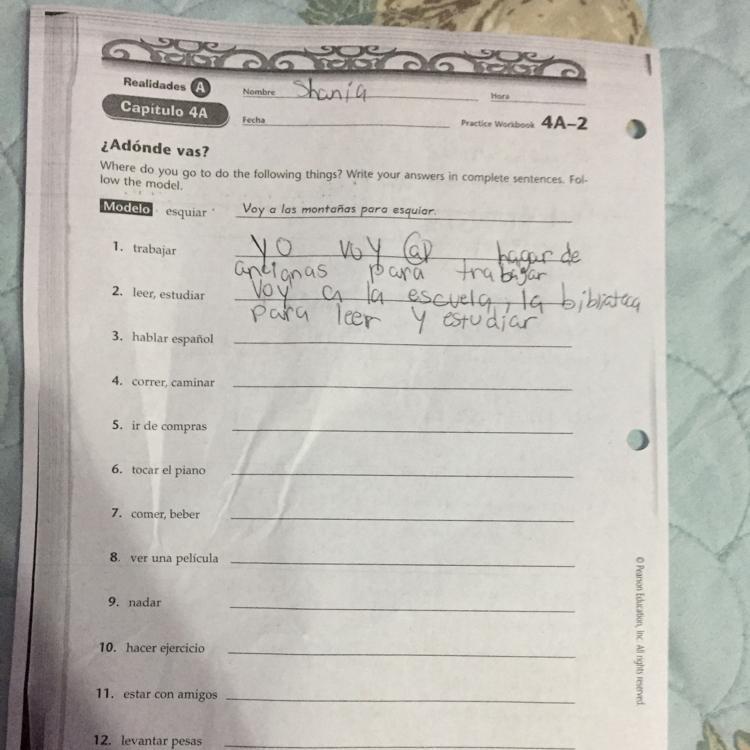 Realidades A
Nombre Shania
Hora
Capítulo 4A
Fecha
Practice Workbook 4A–2
¿Adónde vas?
Where do you go to do the following things? Write your answers in complete sentences. Fol-
low the model.
Modelo esquiar Voy a las montañas para esquiar.
1. trabajar yo voy al hagar de
ancianas para trabajar
2. leer, estudiar Voy a la escuela, la biblioteca
para leer y estudiar
3. hablar español
4. correr, caminar
5. ir de compras
6. tocar el piano
7. comer, beber
8. ver una película
9. nadar
10. hacer ejercicio
11. estar con amigos
12. levantar pesas
© Pearson Education, Inc. All rights reserved.